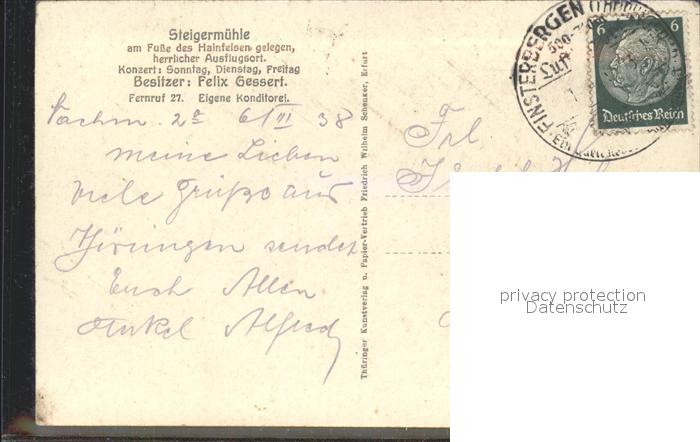 Steigermühle
am Fuße des Hainfelsen gelegen,
herrlicher Ausflugsort.
Konzert: Sonntag, Dienstag, Freitag
Besitzer: Felix Gessert.
Fernruf 27. Eigene Konditorei.
38
Meine Lieben
viele Grüße aus
Thüringen sendet
Euch Allen
Onkel Alfred
Thüringer Kunstverlag u. Papier-Vertrieb Friedrich Wilhelm Schenker, Erfurt
Frl
FINSTERBERGEN
6 6
Deutsches Reich
privacy protection
Datenschutz